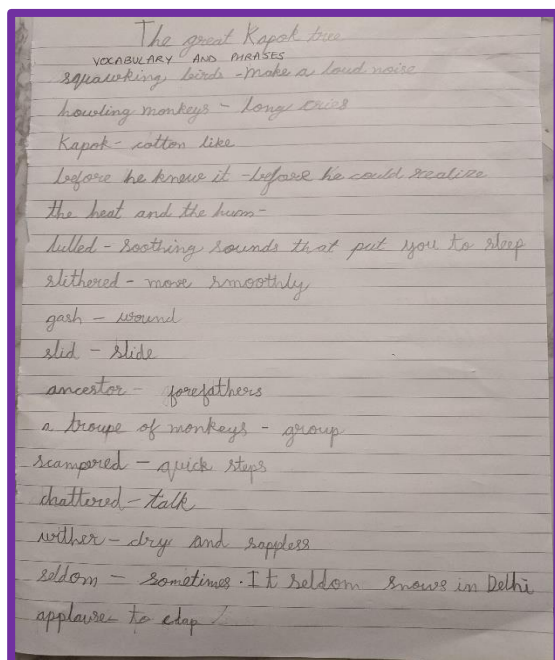 The great Kapok tree
VOCABULARY AND PHRASES
squawking birds - make a loud noise
howling monkeys - long cries
Kapok - cotton like
before he knew it - before he could realize
the heat and the hum -
lulled - soothing sounds that put you to sleep
slithered - move smoothly
gash - wound
slid - slide
ancestor - forefathers
a troupe of monkeys - group
scampered - quick steps
chattered - talk
wither - dry and sappless
seldom - sometimes. It seldom snows in Delhi
applause - to clap